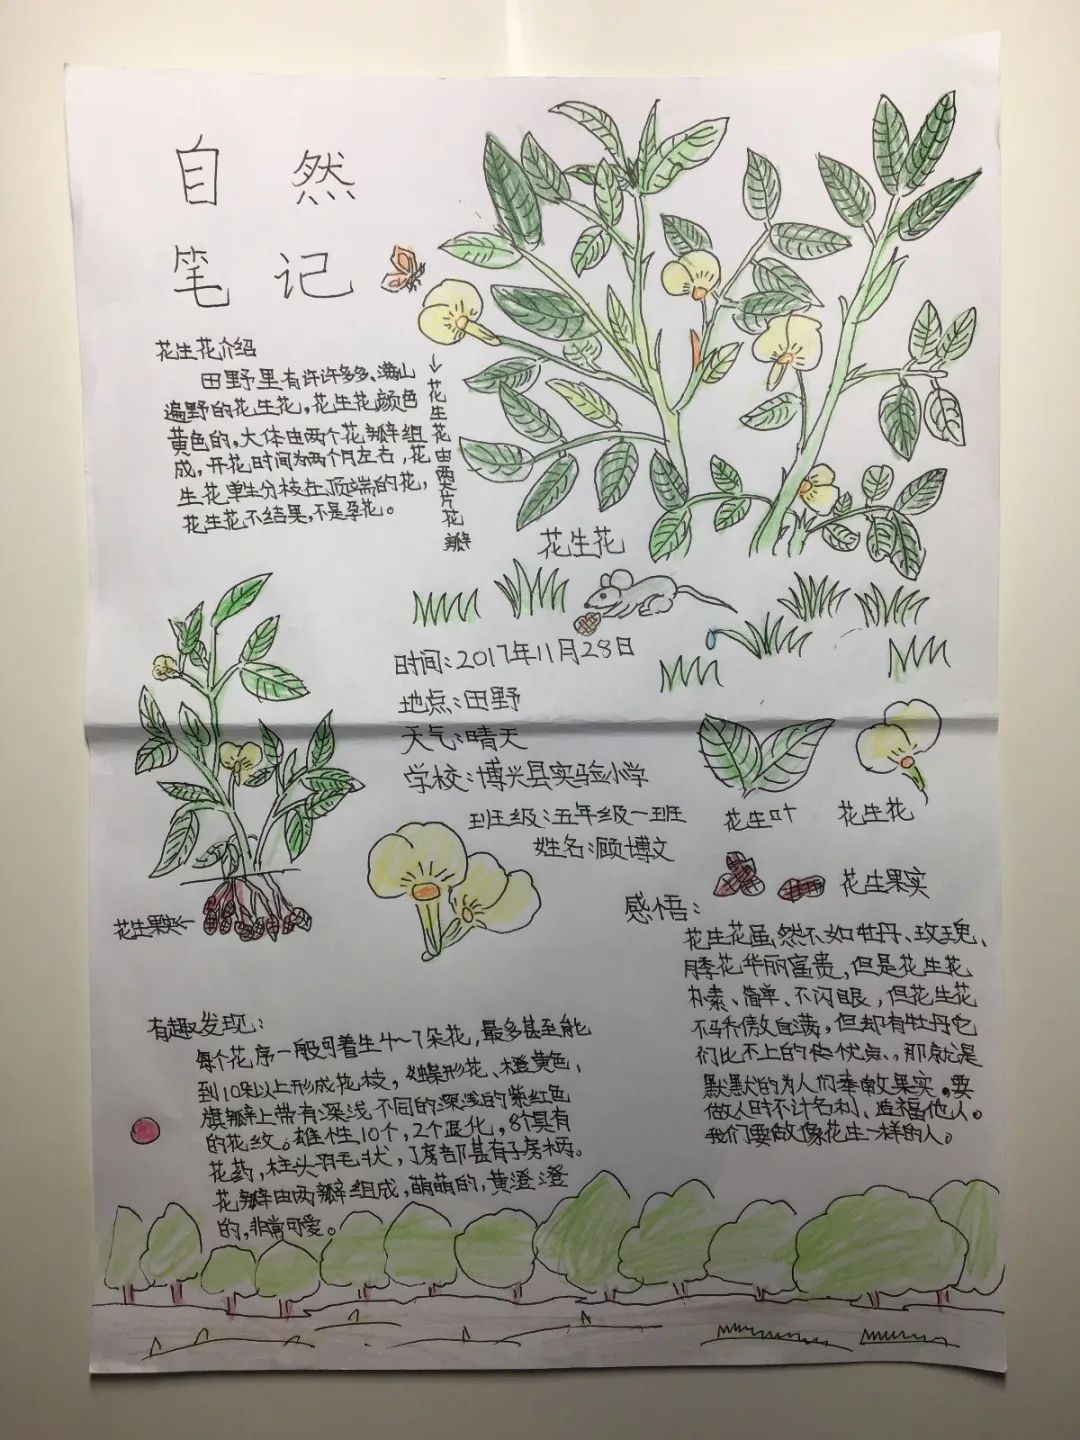 自 然
笔 记
花生花介绍
田野里有许许多多、满山
遍野的花生花，花生花颜色
黄色的，大体由两个花瓣组
成，开花时间为两个月左右，花
生花单生分枝在顶端的花，
花生花不结果，不是孕花。
↓花生花由两片花瓣
花生花
时间：2017年11月28日
地点：田野
天气：晴天
学校：博兴县实验小学
班级：五年级一班
姓名：顾博文
花生叶
花生花
花生果实
花生果实
感悟：
花生花虽然不如牡丹、玫瑰、
月季花华丽富贵，但是花生花
朴素、简单、不闪眼，但花生花
不骄傲自满，但却有牡丹它
们比不上的优点、，那就是
默默的为人们奉献果实。要
做人时不计名利、造福他人。
我们要做像花生一样的人。
有趣发现：
每个花序一般可着生4~7朵花，最多甚至能
到10朵以上形成花枝，蝶形花、橙黄色，
旗瓣上带有深浅不同的深浅的紫红色
的花纹。雄性10个，2个退化，8个具有
花药，柱头羽毛状，子房部甚有子房柄。
花瓣由两瓣组成，萌萌的，黄澄澄
的，非常可爱。